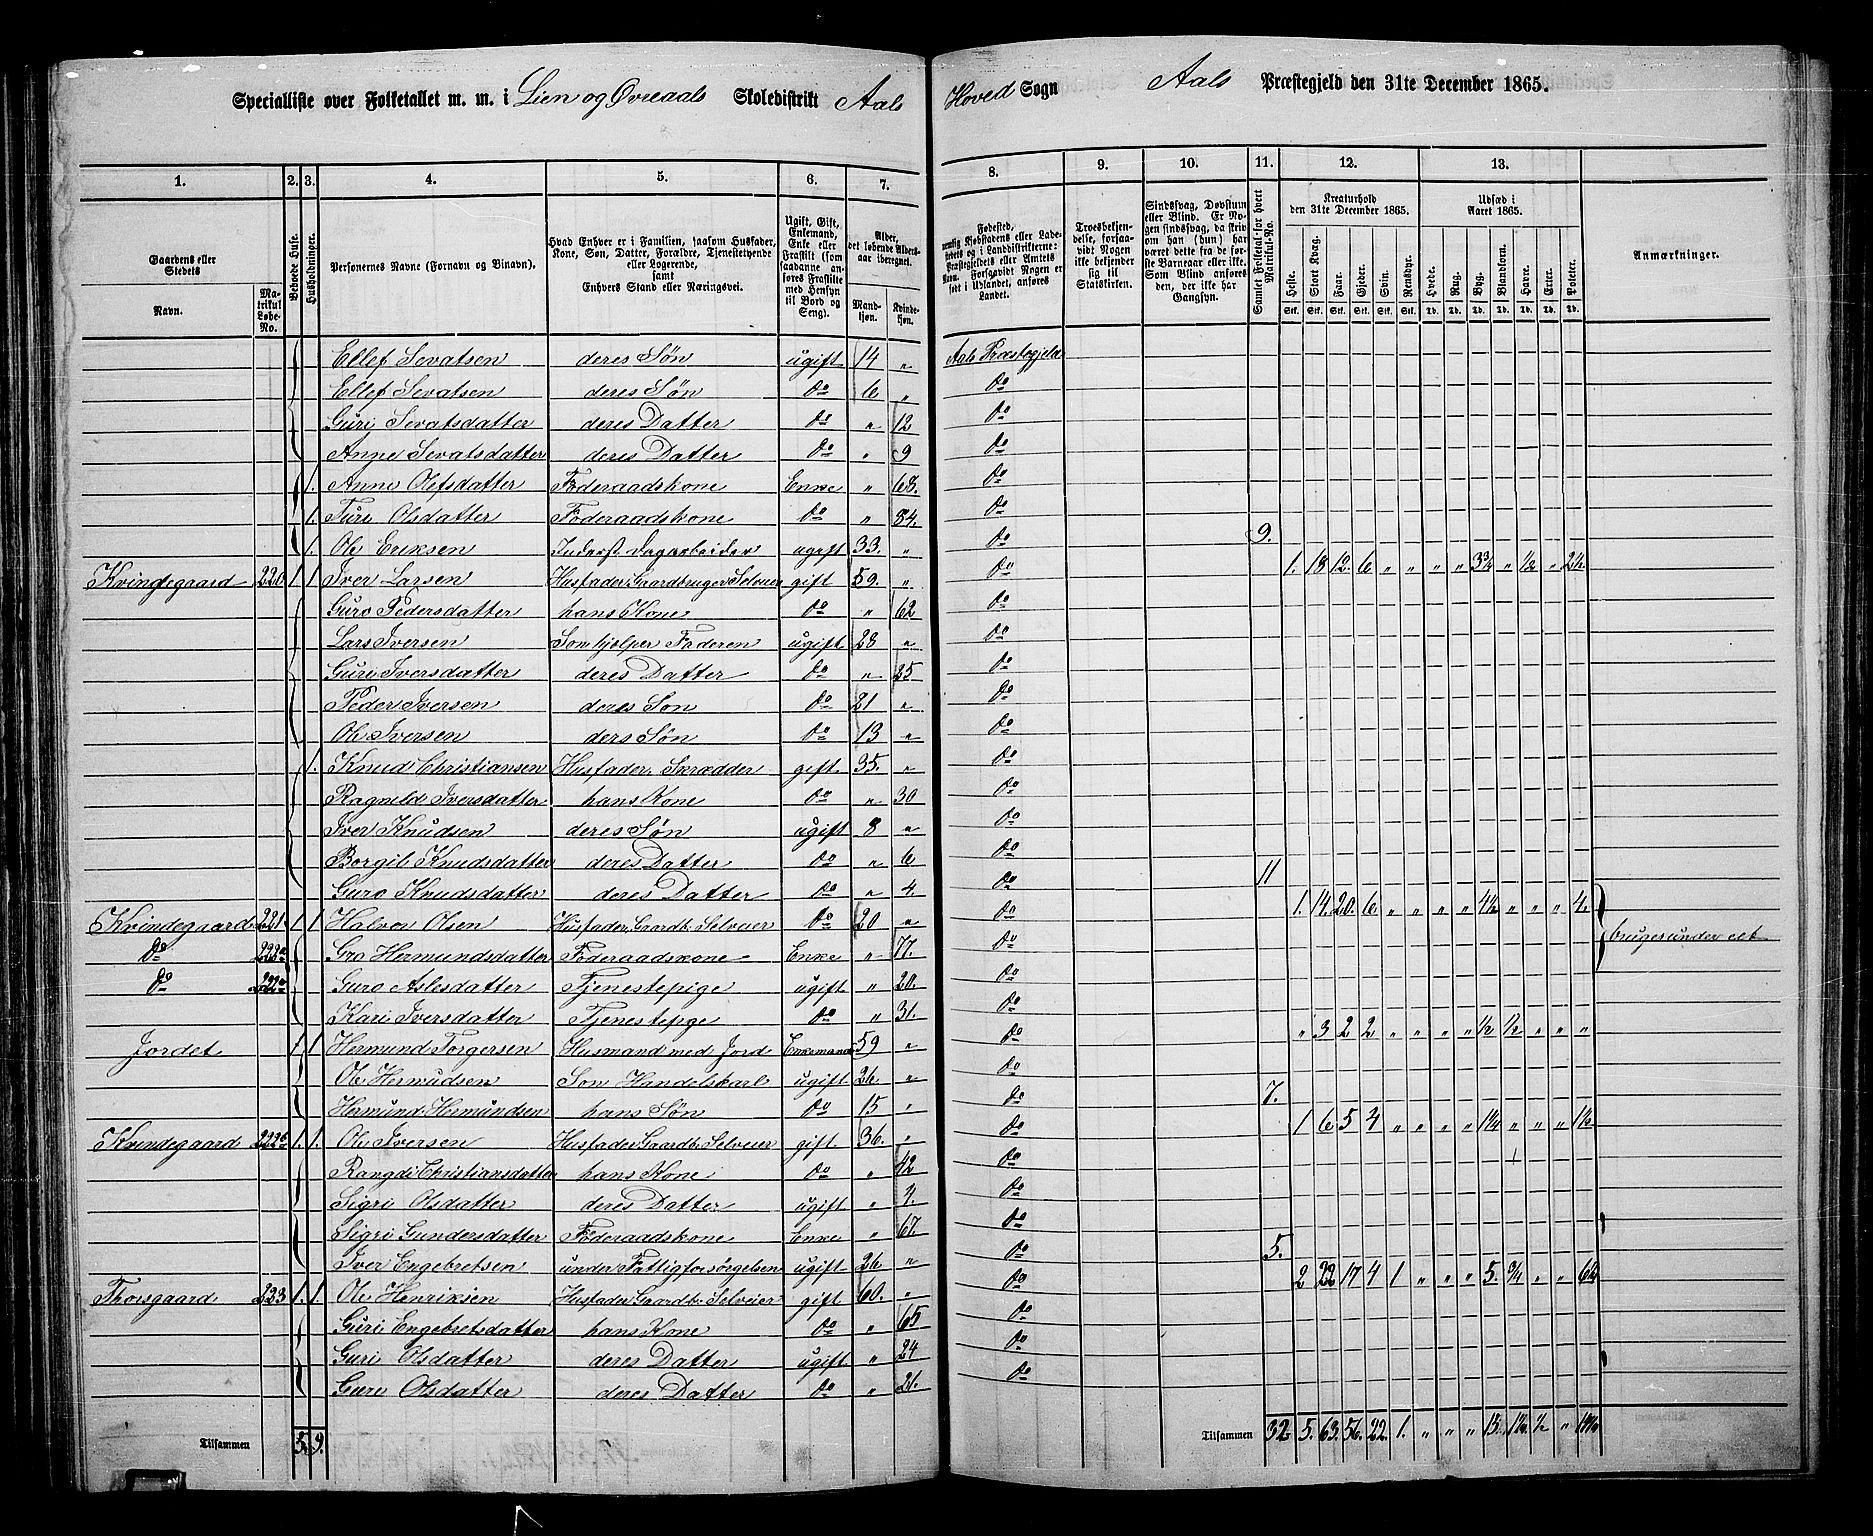 Specialliste over Folketallet m. m. i Lien og Øvreaals Skoledistrikt Aals Hoved Sogn Aals Præstegjeld den 31te December 1865.
1. 2. 3. 4. 5. 6. 7. 8. 9. 10. 11. 12. 13.
Gaardens eller Stedets
Navn.
Matrikul Løbe-No.
Beboede Huse.
Husholdninger.
Personernes Navne (Fornavn og Binavn).
Hvad Enhver er i Familien, saasom Husfader, Kone, Søn, Datter, Forældre, Tjenestetyende eller Logerende, samt Enhvers Stand eller Næringsvei.
Ugift, Gift, Enkemand, Enke eller Fraskilt (som saadanne anføres Fraskilte med Hensyn til Bord og Seng).
Alder, det løbende Aldersaar iberegnet.
Mandkjøn. Kvindekjøn.
Fødested,
Troesbekjendelse, forsaavidt Nogen ikke bekjender sig til Statskirken.
Sindssvag, Døvstum eller Blind. Er Nogen sindssvag, da skriv om han (hun) har været det fra de første Barneaar eller ikke. Som Blind anføres den, der ikke har Gangsyn.
Samlet Folketal for hvert Matrikul-No.
Kreaturhold den 31te December 1865.
Heste. Stort Kvæg. Faar. Gjeder. Svin. Rensdyr.
Udsæd i Aaret 1865.
Hvede. Rug. Byg. Blandkorn. Havre. Erter. Poteter.
Anmærkninger.
Ellef Sevatsen deres Søn ugift 14 " Aals Præstegjeld
Ellef Sevatsen deres Søn do 6 " do
Guri Sevatsdatter deres Datter do " 12 do
Anne Sevatsdatter deres Datter do " 9 do
1. Anne Olefsdatter Føderaadskone Enke " 68. do
1. Turi Olsdatter Føderaadskone do " 84. do
1. Ole Eriksen Inderst Dagarbeider ugift 33. " do 9.
Kvindegaard 220 1 1 Iver Larsen Husfader, Gaardbruger Selveier gift 59. " do 1. 18 12 6 " " " " 3¼ " ½ " 2½
Guro Pedersdatter hans Kone do " 62 do
Lars Iversen Søn hjelper Faderen ugift 28 " do
Guri Iversdatter deres Datter do " 25 do
Peder Iversen deres Søn do 21 " do
Ole Iversen ders Søn do 13 " do
1. Knud Christiansen Husfader, Skrædder gift 35. " do
Ragnild Iversdatter hans Kone do " 30 do
Iver Knudsen deres Søn ugift 8 " do
Borgil Knudsdatter deres Datter do " 6 do
Guro Knudsdatter deres Datter do " 4. do 11
Kvindegaard 221. 1 1 Halvor Olsen Husfader, Gaardb. Selveier do 20 " do 1. 14. 20. 6. " " " " 4½ " " " 4.
do 222a Gro Hermundsdatter Føderaadskone Enke " 77. do bruges under eet
do Guro Aslesdatter Tjenestepige ugift " 20. do
Kari Iversdatter Tjenestepge do " 31. do
Jordet 1 1 Hermund Torgersen Husmand med Jord Enkemand 59 " do " 3 2 2 " " " " ½ ½ " " "
Ole Hermudsen Søn Handelskarl ugift 26. " do
Hermund Hermundsen hans Søn do 15 " do 7.
Kvindegaard 222b 1. 1. Ole Iversen Husfader Gaardb. Selveier gift 36. " do 1 6 5 4 " " " " 1¼ " " " 1½
Rangdi Christiansdatter hans Kone do " 42 do
Sigri Olsdatter deres Datter ugift " do
Sigri Gundersdatter Føderaadskone Enke " 67. do
Iver Engebretsen under Fattigforsørgelsen ugift 26 " do 5.
Thorsgaard 223 1. 1. Ole Henriksen Husfader Gaardb. Selveier gift 60. " do 2 22 17 4 1 " " " 5. ¾ " " 6½
Guri Engebretsdatter hans Kone do " 65 do
Guri Olsdatter deres Datter ugift " 24 do
Guri Olsdatter deres Datter do " 21. do
Tilsammen 5. 9.
Tilsammen 32 5. 63. 56. 22. 1. " " "